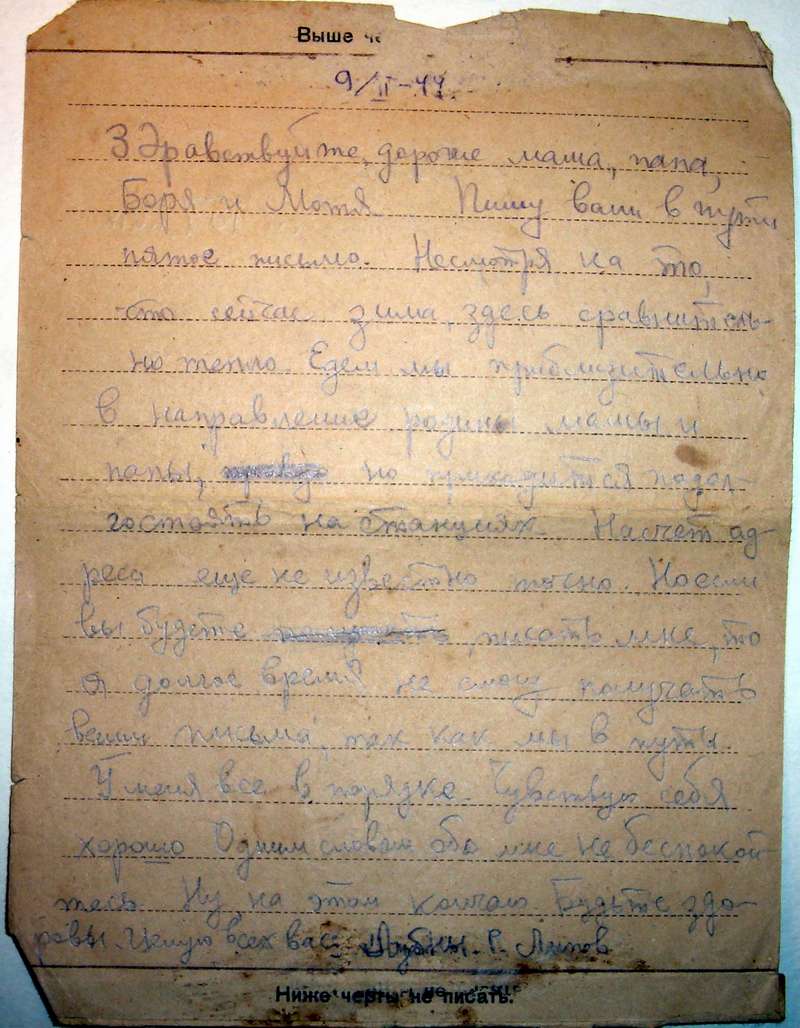 Выше че
9/II-44
Здравствуйте, дорогие мама, папа,
Боря и Мотя Пишу вам в пути
пятое письмо. Несмотря на то,
что сейчас зима, здесь сравнитель-
но тепло. Едем мы приблизительно
в направление родины мамы и
папы, но приходится подол-
гостоять на станциях. Насчет ад-
реса еще не известно точно. Но если
вы будете писать мне, то
я долгое время не смогу получать
ваши письма, так как мы в пути.
У меня все в порядке. Чувствую себя
хорошо Одним словом обо мне не беспокой
тесь. Ну, на этом кончаю. Будьте здо-
ровы. Целую всех вас. Лубны. Г. Липов
Ниже черты не писать.